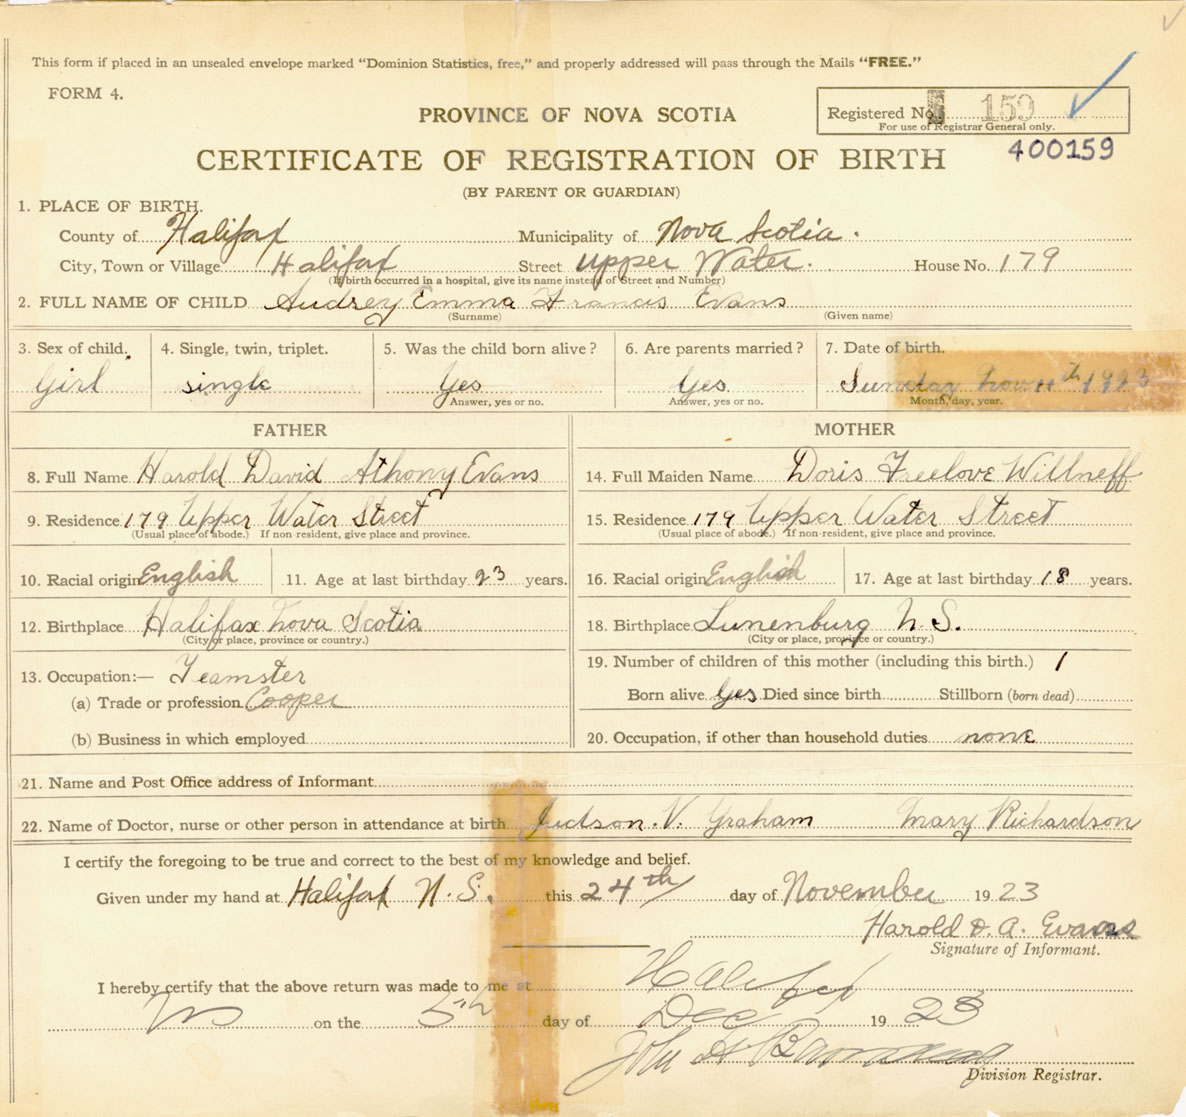 This form if placed in an unsealed envelope marked "Dominion Statistics, free," and properly addressed will pass through the Mails "FREE."
FORM 4.
PROVINCE OF NOVA SCOTIA
Registered No. 159
For use of Registrar General only.
400159
CERTIFICATE OF REGISTRATION OF BIRTH
(BY PARENT OR GUARDIAN)
1. PLACE OF BIRTH.
County of Halifax Municipality of Nova Scotia.
City, Town or Village Halifax Street Upper Water. House No. 179
(If birth occurred in a hospital, give its name instead of Street and Number)
2. FULL NAME OF CHILD Audrey Emma Francis Evans
(Surname) (Given name)
3. Sex of child. 4. Single, twin, triplet. 5. Was the child born alive? 6. Are parents married? 7. Date of birth.
Girl single Yes Yes Sunday Nov 11th 1923
Answer, yes or no. Answer, yes or no. Month, day, year.
FATHER MOTHER
8. Full Name Harold David Athony Evans 14. Full Maiden Name Doris Freelove Willneff
9. Residence 179 Upper Water Street 15. Residence 179 Upper Water Street
(Usual place of abode.) If non-resident, give place and province. (Usual place of abode.) If non-resident, give place and province.
10. Racial origin English 11. Age at last birthday 23 years. 16. Racial origin English 17. Age at last birthday 18 years.
12. Birthplace Halifax Nova Scotia 18. Birthplace Lunenburg N.S.
(City or place, province or country.) (City or place, province or country.)
13. Occupation:— Teamster 19. Number of children of this mother (including this birth.) 1
(a) Trade or profession Cooper Born alive Yes Died since birth Stillborn (born dead)
(b) Business in which employed 20. Occupation, if other than household duties none
21. Name and Post Office address of Informant
22. Name of Doctor, nurse or other person in attendance at birth Judson. V. Graham Mary Richardson
I certify the foregoing to be true and correct to the best of my knowledge and belief.
Given under my hand at Halifax N.S. this 24th day of November 1923
Harold D. A. Evans
Signature of Informant.
I hereby certify that the above return was made to me at Halifax
NS on the 5th day of Dec 1923
John A
Division Registrar.